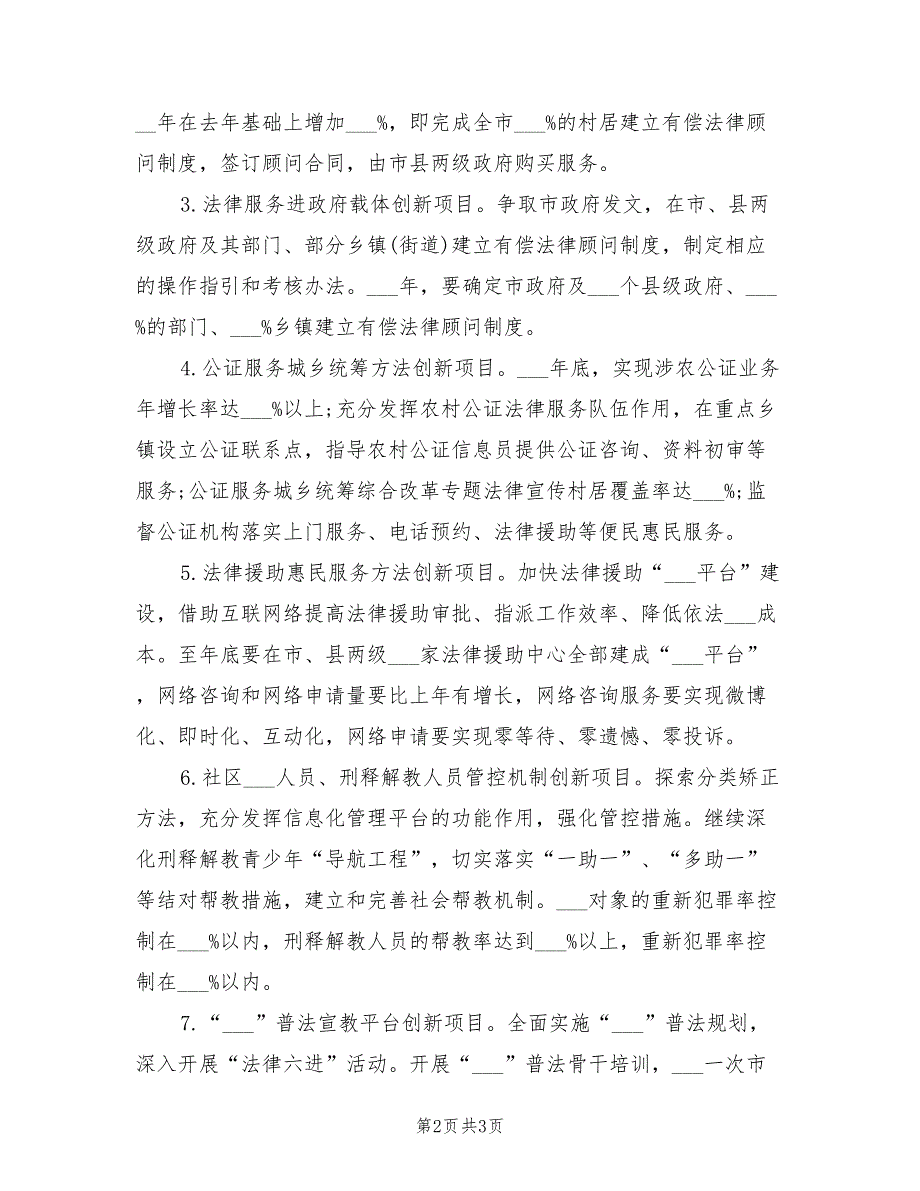 __年在去年基础上增加___%，即完成全市___%的村居建立有偿法律顾
问制度，签订顾问合同，由市县两级政府购买服务。
3.法律服务进政府载体创新项目。争取市政府发文，在市、县两
级政府及其部门、部分乡镇(街道)建立有偿法律顾问制度，制定相应
的操作指引和考核办法。___年，要确定市政府及___个县级政府、___
%的部门、___%乡镇建立有偿法律顾问制度。
4.公证服务城乡统筹方法创新项目。___年底，实现涉农公证业务
年增长率达___%以上;充分发挥农村公证法律服务队伍作用，在重点乡
镇设立公证联系点，指导农村公证信息员提供公证咨询、资料初审等
服务;公证服务城乡统筹综合改革专题法律宣传村居覆盖率达___%;监
督公证机构落实上门服务、电话预约、法律援助等便民惠民服务。
5.法律援助惠民服务方法创新项目。加快法律援助“___平台”建
设，借助互联网络提高法律援助审批、指派工作效率、降低依法___成
本。至年底要在市、县两级___家法律援助中心全部建成“___平台”
，网络咨询和网络申请量要比上年有增长，网络咨询服务要实现微博
化、即时化、互动化，网络申请要实现零等待、零遗憾、零投诉。
6.社区___人员、刑释解教人员管控机制创新项目。探索分类矫正
方法，充分发挥信息化管理平台的功能作用，强化管控措施。继续深
化刑释解教青少年“导航工程”，切实落实“一助一”、“多助一”
等结对帮教措施，建立和完善社会帮教机制。___对象的重新犯罪率控
制在___%以内，刑释解教人员的帮教率达到___%以上，重新犯罪率控
制在___%以内。
7.“___”普法宣教平台创新项目。全面实施“___”普法规划，
深入开展“法律六进”活动。开展“___”普法骨干培训，___一次市
第2页 共3页